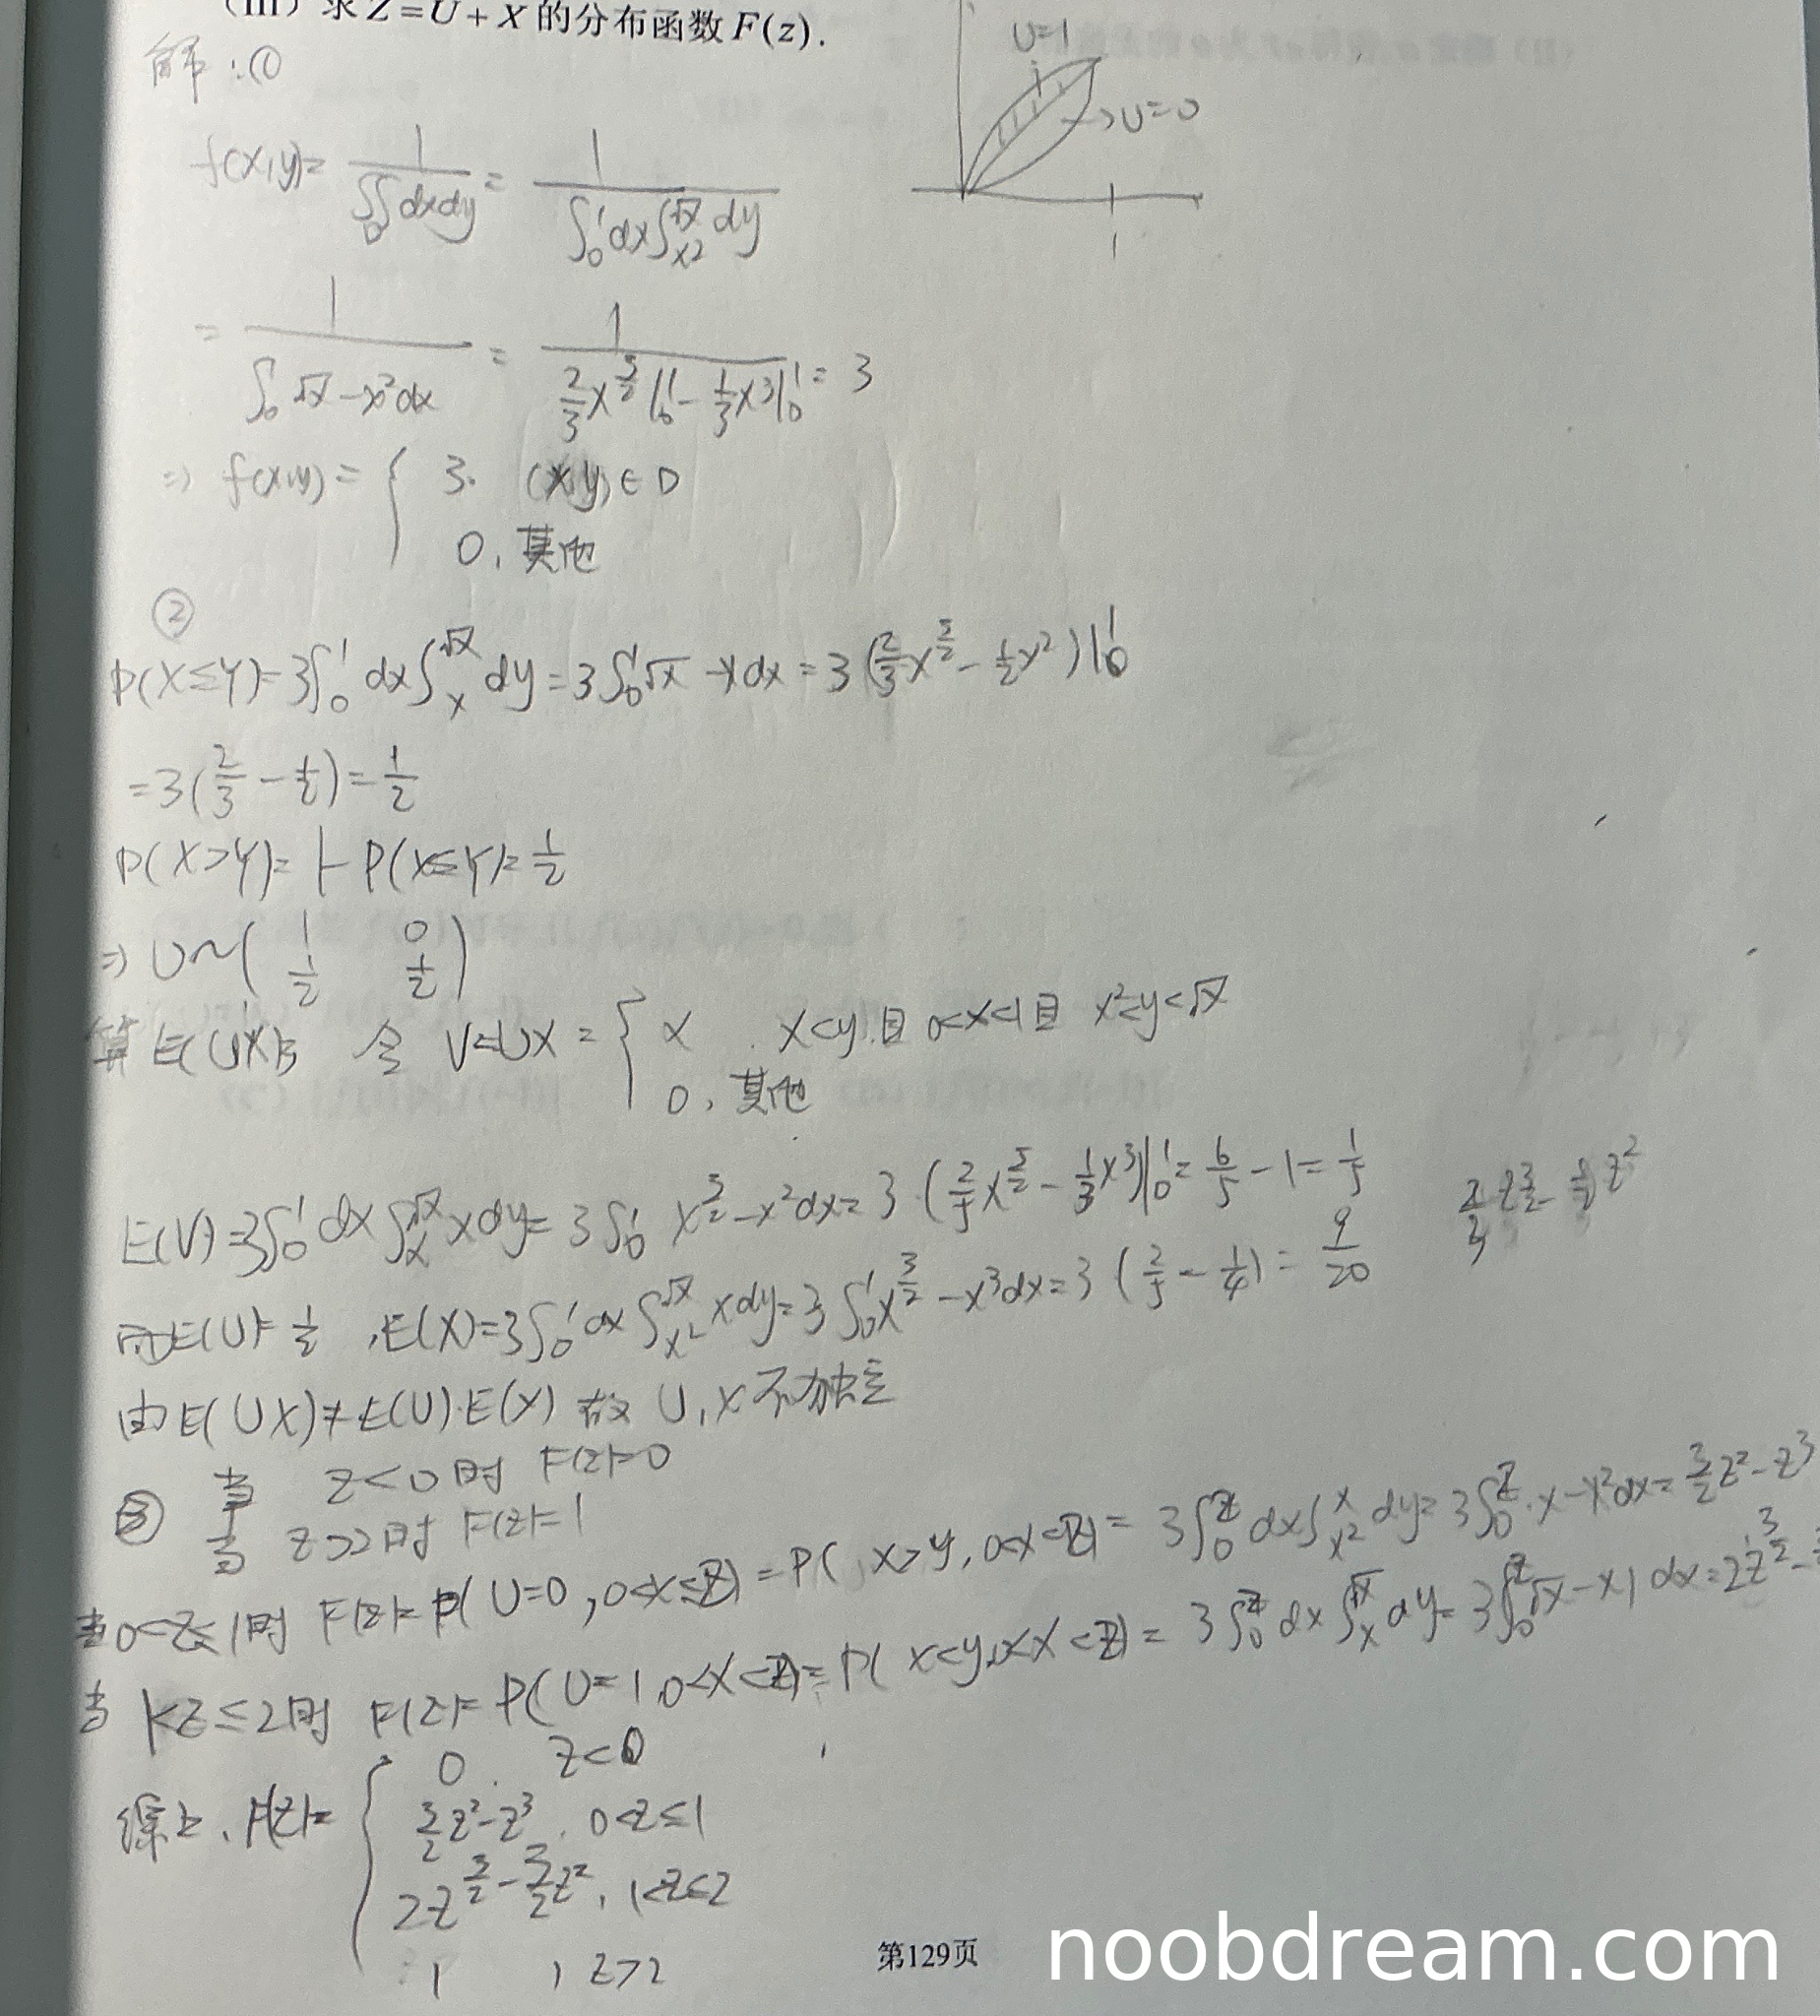 (III) 求 Z=U+X 的分布函数 F(z).
解:①
U=1
→U=0
1
f(x,y)= 1/∬_D dxdy = 1/∫_0^1 dx∫_{x^2}^{√x} dy
= 1/∫_0 √x-x^2dx = 1/(2/3 x^{3/2}|_0^1 - 1/3 x^3|_0^1) = 3
⇒ f(x,y) = { 3. (x,y)∈D
0, 其他
②
P(X≤Y)=3∫_0^1 dx∫_x^{√x} dy=3∫_0^1 √x-x dx=3(2/3 x^{3/2} - 1/2 x^2)|_0^1
=3(2/3 - 1/2)=1/2
P(X>Y)=1-P(X≤Y)=1/2
⇒ U~( 1 0
1/2 1/2 )
算 E(UX), 令 V=UX = { x , x<y 且 0<x<1 且 x^2<y<√x
0, 其他
E(V)=3∫_0^1 dx∫_x^{√x} xdy=3∫_0^1 x^{3/2}-x^2dx=3(2/5 x^{5/2} - 1/3 x^3)|_0^1=6/5-1=1/5
而E(U)=1/2 ,E(X)=3∫_0^1 dx∫_{x^2}^{√x} xdy=3∫_0^1 x^{3/2}-x^3dx=3(2/5-1/4)=9/20
2/3 z^{3/2} - 1/2 z^2
由E(UX)≠E(U)·E(X) 故 U,X不独立
③ 当 z<0时 F(z)=0
当 z>2时 F(z)=1
当0<z≤1时 F(z)=P(U=0,0<X≤z)=P(X>Y,0<X<z)=3∫_0^z dx∫_{x^2}^x dy=3∫_0^z x-x^2dx=3/2 z^2-z^3
当 1<z≤2时 F(z)=P(U=1,0<X<z)=P(X<Y,0<X<z)=3∫_0^z dx∫_x^{√x} dy=3∫_0^z √x-x) dx=2z^{3/2}-
综上, F(z)= { 0 . z<0
3/2 z^2-z^3 , 0<z≤1
2z^{3/2}-3/2 z^2 , 1<z≤2
1 , z>2
第129页
noobdream.com